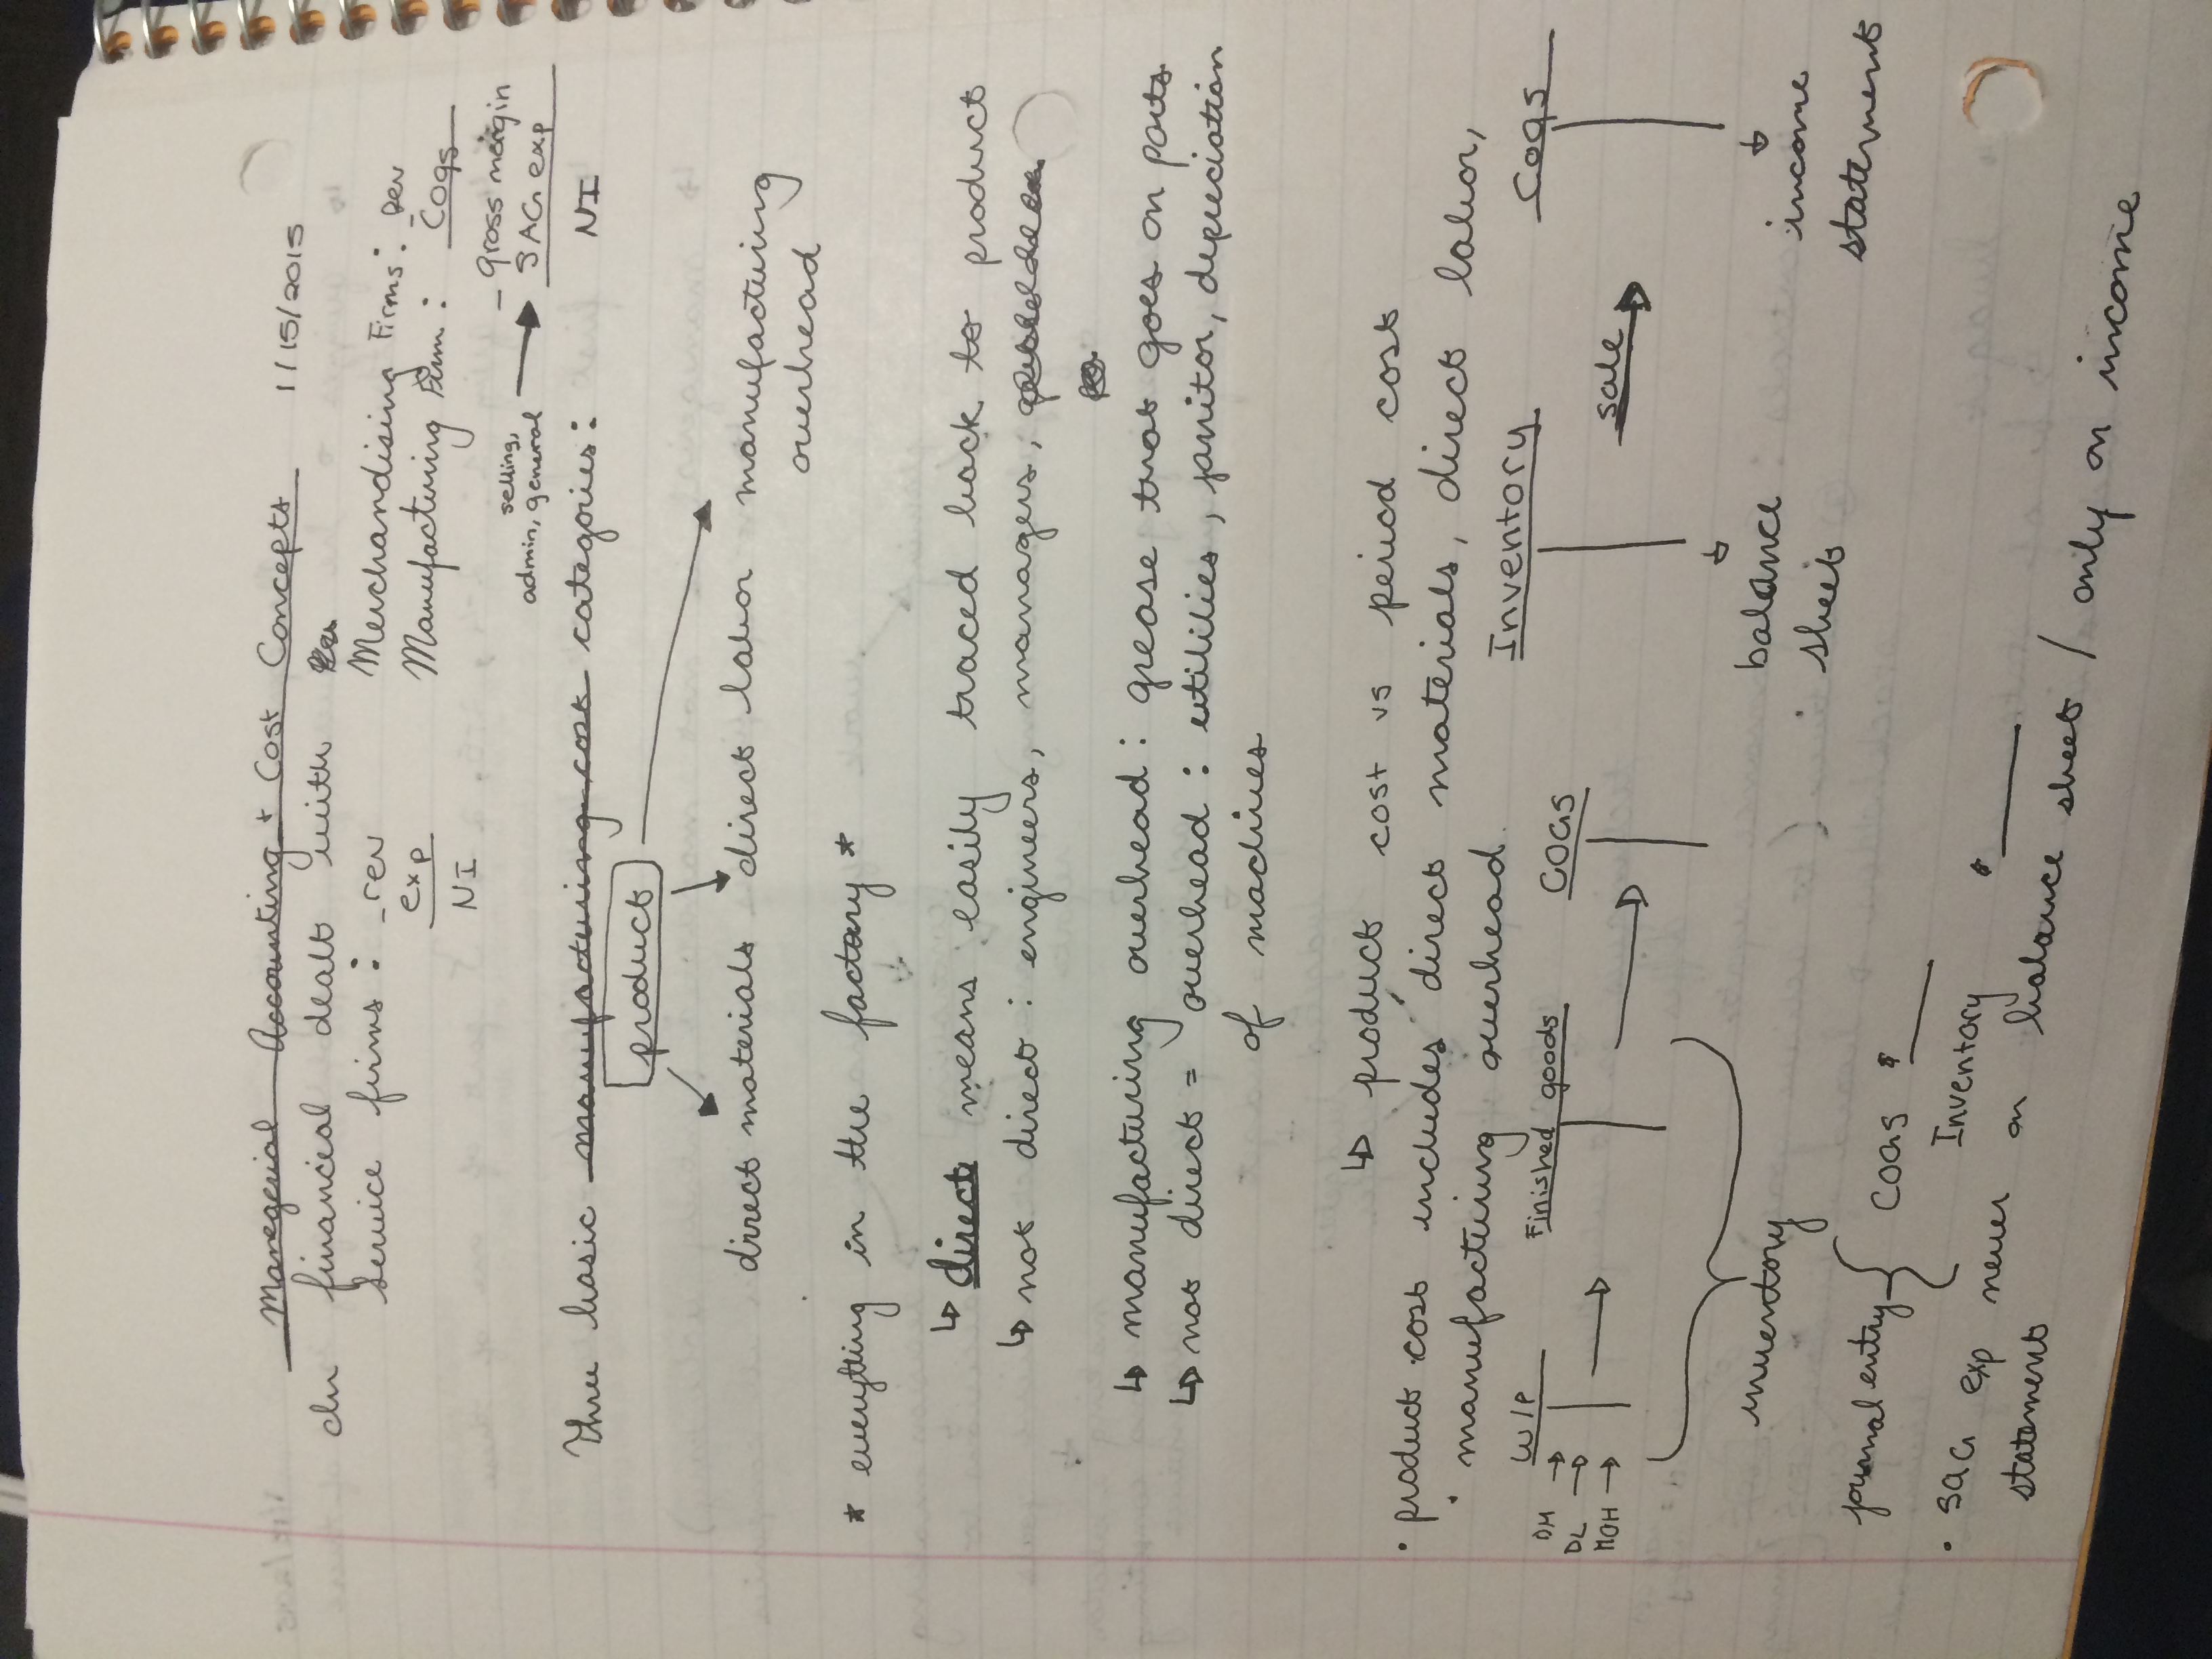 Managerial Accounting + Cost Concepts 1/15/2015
In financial dealt with
service firms: - rev
exp
NI
Merchandising Firms: Rev
Manufacturing Firm: - COGS
- gross margin
SAG exp
NI
selling,
admin, general
Three basic manufacturing cost categories:
product
direct materials direct labor manufacturing
overhead
* everything in the factory *
↳ direct means easily traced back to product
↳ not direct: engineers, managers,
↳ manufacturing overhead: grease that goes on parts
↳ not direct = overhead: utilities, janitor, depreciation
of machines
↳ product cost vs period cost
• product cost includes direct materials, direct labor,
manufacturing overhead.
WIP Finished goods COGS Inventory COGS
DM →
DL →
MOH →
sale
inventory
balance
sheet
income
statement
journal entry { COGS $ ____
Inventory $ ____
• SAG exp never on balance sheet / only on income
statement